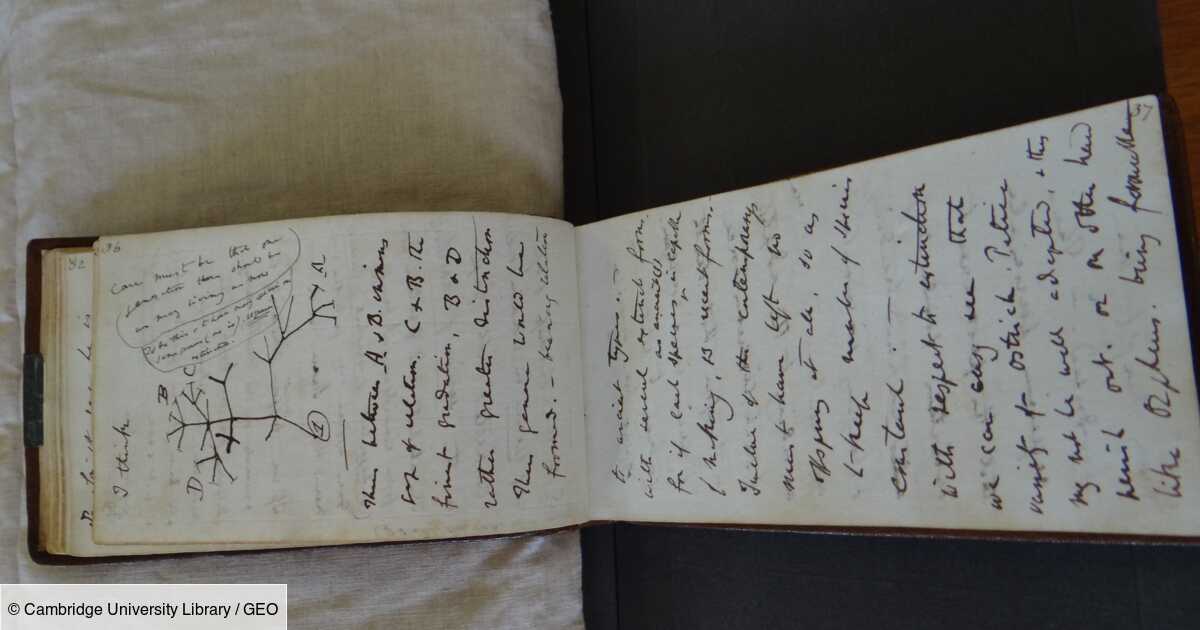 36
I think
Case must be that one
generation then should be
as many living as now
To do this & to have many species in
same genus (as is). requires
extinction.
B
C
D
A
1
Thus between A & B. immens
gap of relation. C & B. the
finest gradation, B & D
rather greater distinction
Thus genera would be
formed. — bearing relation
37
to ancient types. —
with several extinct forms,
for if each species is capable
of making, 13 recent forms. —
Twelve of the contemporarys
must have left no
offspring at all, so as
to keep number of species
constant. —
With respect to extinction
we can easy see that
variety of ostrich, Petise
may not be well adapted, & thus
perish out, or on other hand
like Orpheus. being favourable
32
© Cambridge University Library / GEO